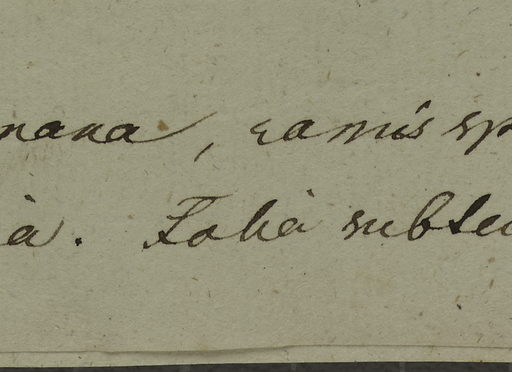 nana, ramis sp
a. Folia subte